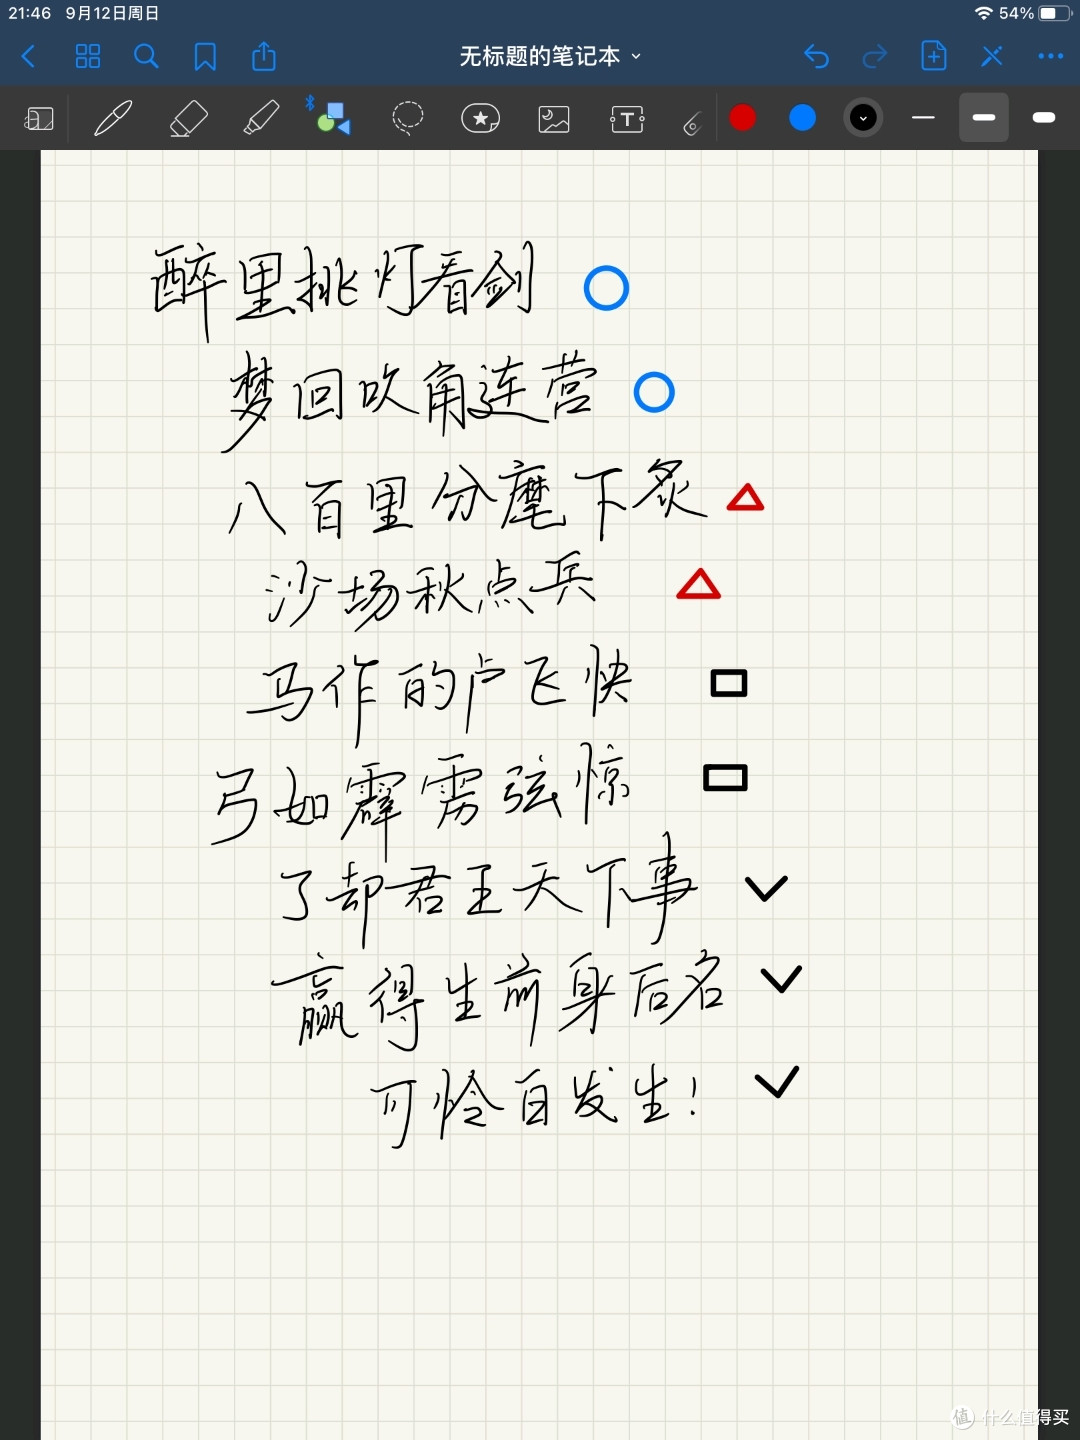 21:46 9月12日周日 54%
无标题的笔记本
T
醉里挑灯看剑
梦回吹角连营
八百里分麾下炙
沙场秋点兵
马作的卢飞快
弓如霹雳弦惊
了却君王天下事
赢得生前身后名
可怜白发生!
值 什么值得买